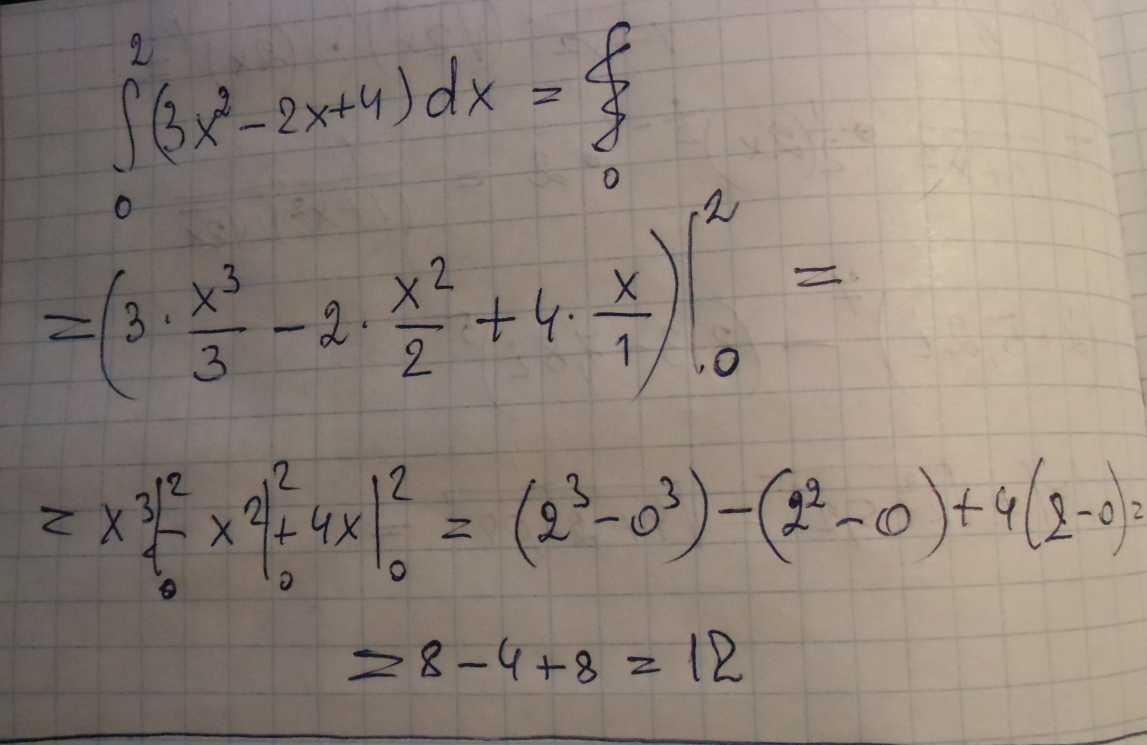 ∫₀² (3x² - 2x + 4) dx =
= (3 · x³/3 - 2 · x²/2 + 4 · x/1) |₀² =
= x³|₀² - x²|₀² + 4x|₀² = (2³ - 0³) - (2² - 0) + 4(2 - 0) =
= 8 - 4 + 8 = 12